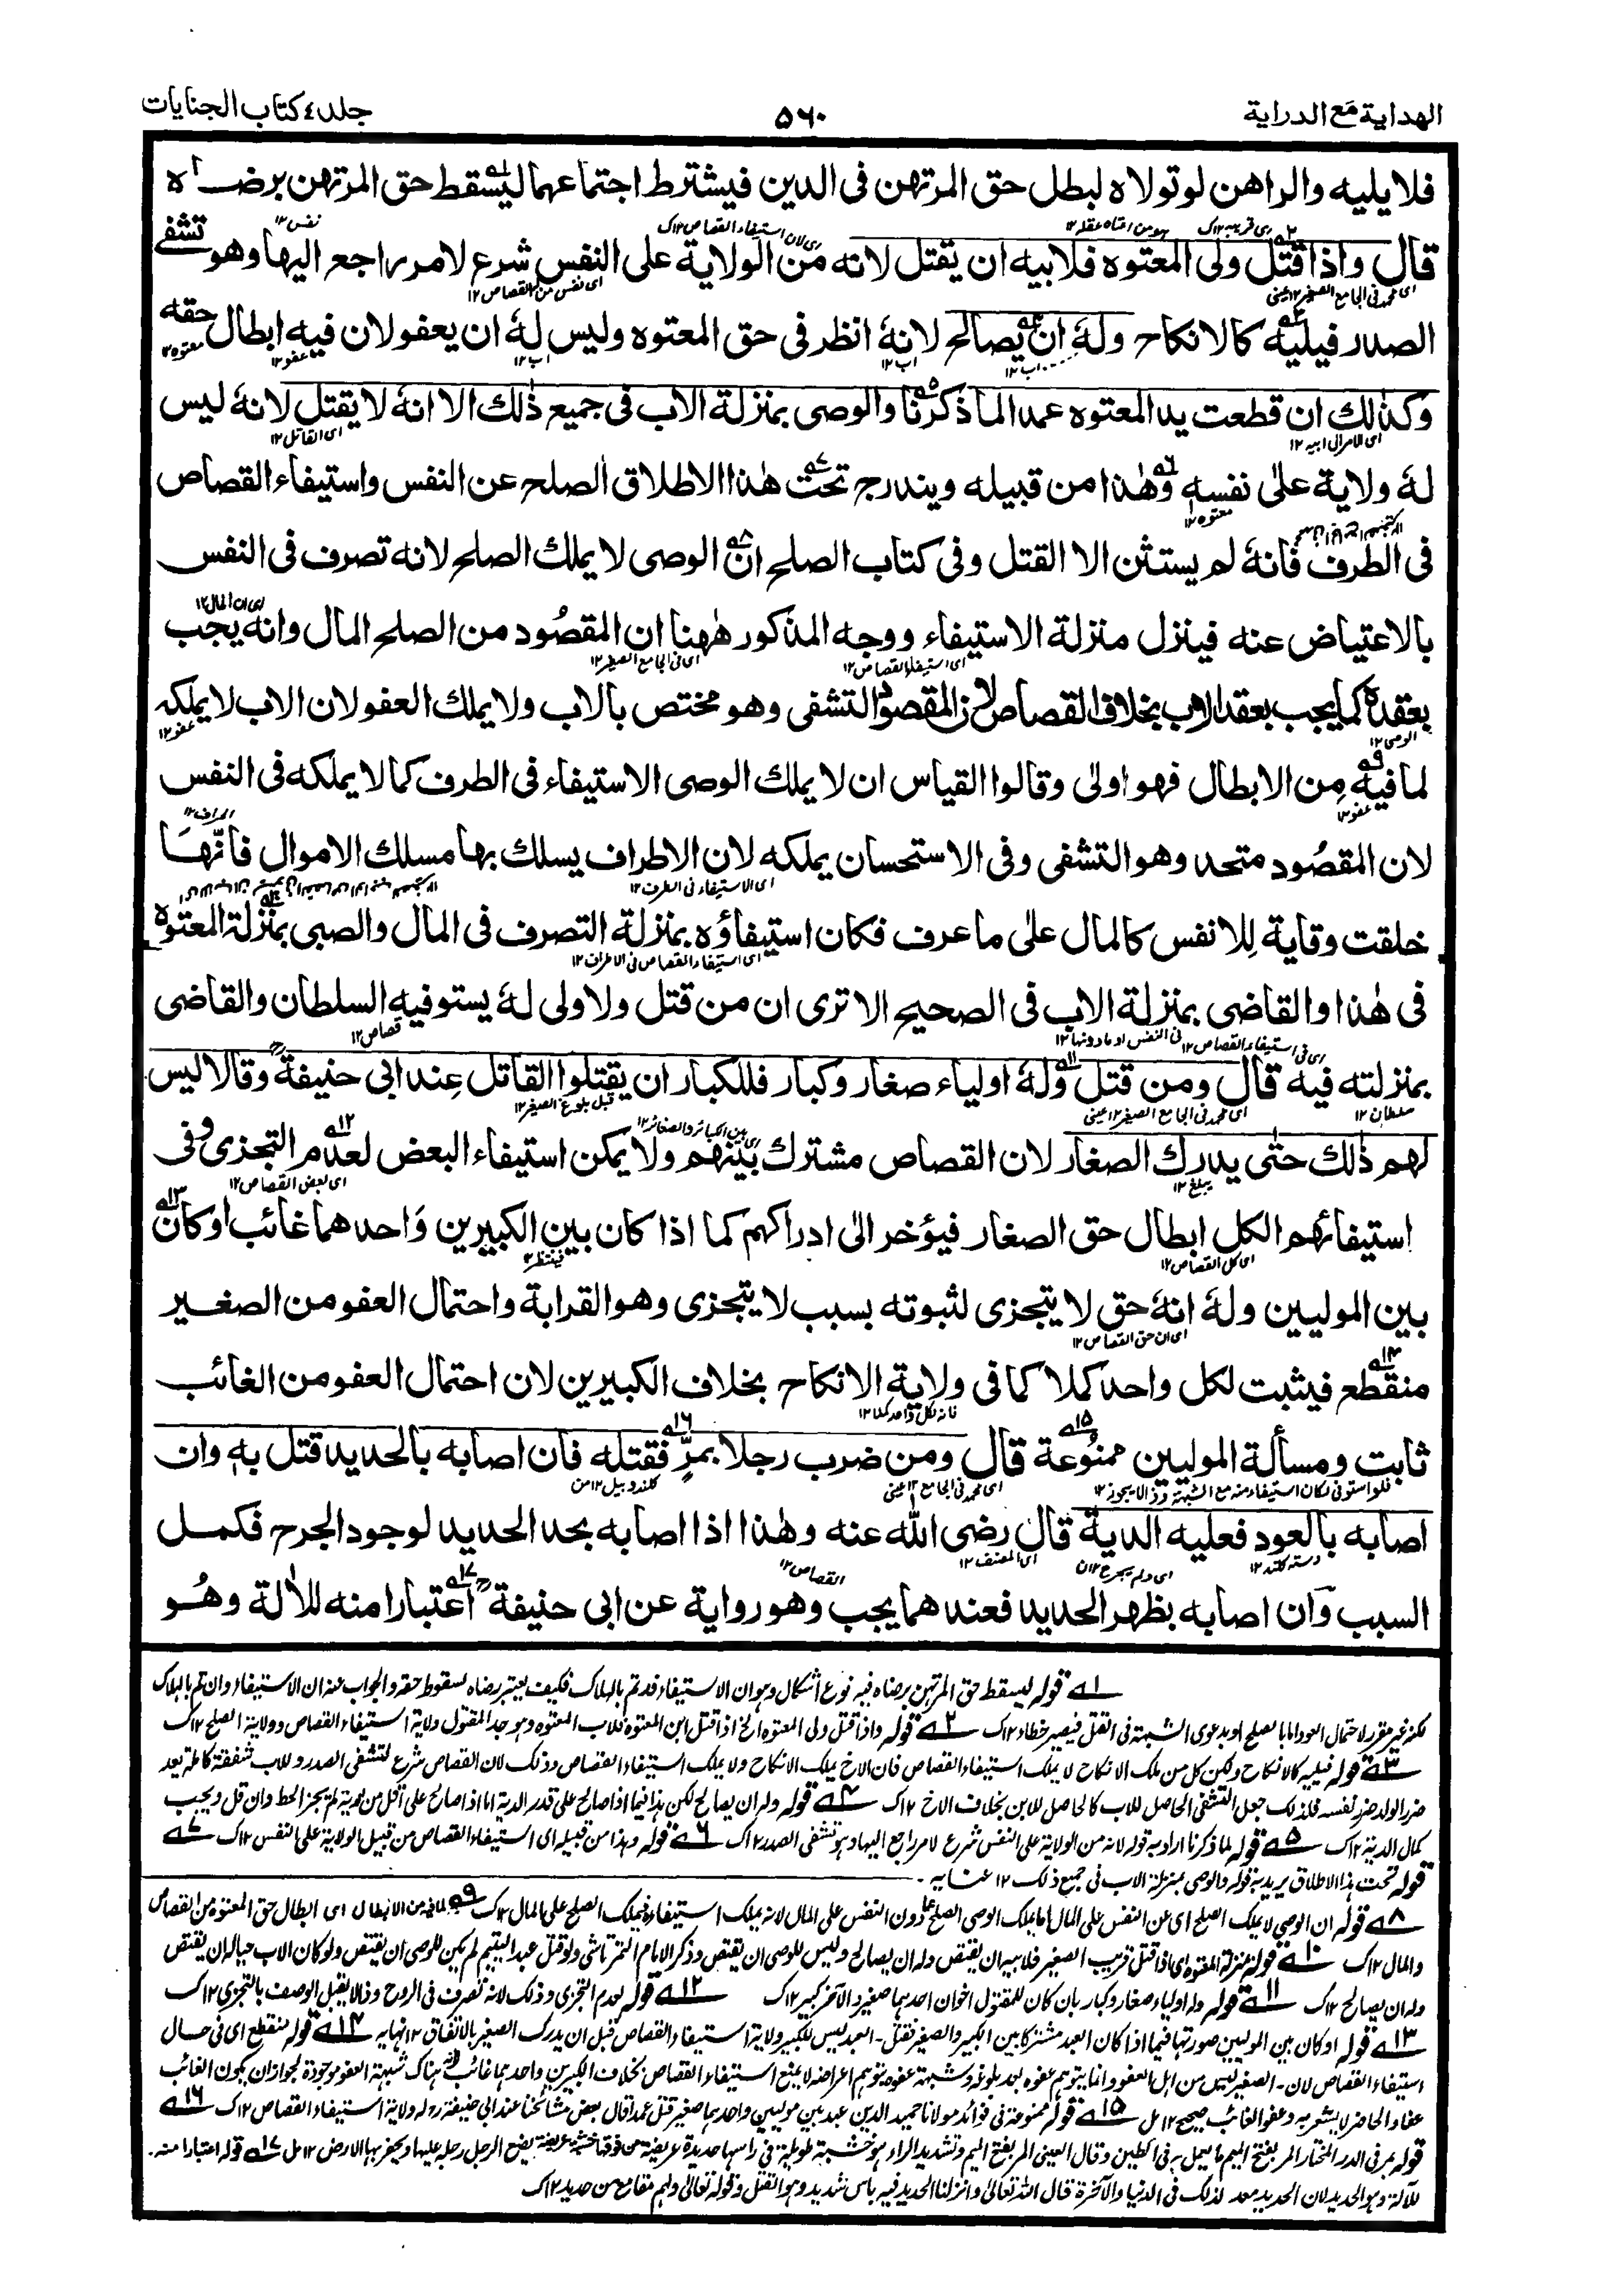 الهداية مع الدراية
٥٦٠
جلد ٤ كتاب الجنايات
فلا يليه والراهن لو تولاه لبطل حق المرتهن فى الدين فيشترط اجتماعهما ليسقط حق المرتهن برضاه
قال واذا قتل ولى المعتوه فلابيه ان يقتل لانه من الولاية على النفس شرع لامر راجع اليها وهو تشفى
الصدر فيليه كالانكاح وله ان يصالح لانه انظر فى حق المعتوه وليس له ان يعفو لان فيه ابطال حقه
وكذلك ان قطعت يد المعتوه عمدا لما ذكرنا والوصى بمنزلة الاب فى جميع ذلك الا انه لا يقتل لانه ليس
له ولاية على نفسه وهذا من قبيله ويندرج تحت هذا الاطلاق الصلح عن النفس واستيفاء القصاص
فى الطرف فانه لم يستثن الا القتل وفى كتاب الصلح ان الوصى لا يملك الصلح لانه تصرف فى النفس
بالاعتياض عنه فينزل منزلة الاستيفاء ووجه المذكور ههنا ان المقصود من الصلح المال وانه يجب
بعقده كما يجب بعقد الاب بخلاف القصاص لان المقصود التشفى وهو مختص بالاب ولا يملك العفو لان الاب لا يملكه
لما فيه من الابطال فهو اولى وقالوا القياس ان لا يملك الوصى الاستيفاء فى الطرف كما لا يملكه فى النفس
لان المقصود متحد وهو التشفى وفى الاستحسان يملكه لان الاطراف يسلك بها مسلك الاموال فانها
خلقت وقاية للانفس كالمال على ما عرف فكان استيفاؤه بمنزلة التصرف فى المال والصبى بمنزلة المعتوه
فى هذا والقاضى بمنزلة الاب فى الصحيح الا ترى ان من قتل ولا ولى له يستوفيه السلطان والقاضى
بمنزلته فيه قال ومن قتل وله اولياء صغار وكبار فللكبار ان يقتلوا القاتل عند ابى حنيفة وقالا ليس
لهم ذلك حتى يدرك الصغار لان القصاص مشترك بينهم ولا يمكن استيفاء البعض لعدم التجزى وفى
استيفائهم الكل ابطال حق الصغار فيؤخر الى ادراكهم كما اذا كان بين الكبيرين واحدهما غائب او كان
بين الموليين وله انه حق لا يتجزى لثبوته بسبب لا يتجزى وهو القرابة واحتمال العفو من الصغير
منقطع فيثبت لكل واحد كملا كما فى ولاية الانكاح بخلاف الكبيرين لان احتمال العفو من الغائب
ثابت ومسألة الموليين ممنوعة قال ومن ضرب رجلا بمر فقتله فان اصابه بالحديد قتل به وان
اصابه بالعود فعليه الدية قال رضى الله عنه وهذا اذا اصابه بحد الحديد لوجود الجرح فكمل
السبب وان اصابه بظهر الحديد فعندهما يجب وهو رواية عن ابى حنيفة اعتبارا منه للألة وهو
١ قوله ليسقط حق المرتهن برضاه فيه نوع اشكال وهو ان الاستيفاء قد تم بالهلاك فكيف يعتبر رضاه لسقوط حقه والجواب عنه ان الاستيفاء وان تم بالهلاك
لكنه غير مقرر لاحتمال العود اما بالصلح او بدعوى الشبهة فى القتل فيصير خطاء ١٢ ك ٢ قوله واذا قتل ولى المعتوه الخ اذا قتل ابن المعتوه فلاب المعتوه وهو جد المقتول ولاية استيفاء القصاص وولاية الصلح ١٢ ك
٣ قوله فيليه كالانكاح ولكن كل من ملك الانكاح لا يملك استيفاء القصاص فان الاخ يملك الانكاح ولا يملك استيفاء القصاص وذلك لان القصاص شرع لتشفى الصدر وللاب شفقة كاملة يعد
ضرر الولد ضرر نفسه فلذلك جعل التشفى الحاصل للاب كالحاصل للابن بخلاف الاخ ١٢ ك ٤ قوله وله ان يصالح لكن هذا فيما اذا صالح على قدر الدية اما اذا صالح على اقل من الدية لم يجز الحط وان قل ويجب
كمال الدية ١٢ ك ٥ قوله لما ذكرنا اراد به قوله لانه من الولاية على النفس شرع لامر راجع اليها وهو تشفى الصدر ١٢ ك ٦ قوله وهذا من قبيله اى استيفاء القصاص من قبيل الولاية على النفس ١٢ ك ٧
قوله تحت هذا الاطلاق يريد به قوله والوصى بمنزلة الاب فى جميع ذلك ١٢ عنايه
٨ قوله ان الوصى لا يملك الصلح اى عن النفس على المال
والمال ١٢ ك ١٠ قوله بمنزلة المعتوه اى اذا قتل قريب الصغير فلابيه ان يقتص وله ان يصالح وليس للوصى ان يقتص وذكر الامام التمرتاشى ولو قتل عبد اليتيم لم يكن للوصى ان يقتص ولو كان الاب حيا له ان يقتص
وله ان يصالح ١٢ ك ١١ قوله وله اولياء صغار وكبار بان كان للمقتول اخوان احدهما صغير والآخر كبير ١٢ ك ١٢ قوله لعدم التجزى وذلك لانه تصرف فى الروح وذا لا يقبل الوصف بالتجزى ١٢ ك
١٣ قوله او كان بين الموليين صورتها فيما اذا كان العبد مشتركا بين الكبير والصغير فقتل العبد ليس للكبير ولاية استيفاء القصاص قبل ان يدرك الصغير بالاتفاق ١٢ نهايه ١٤ قوله منقطع اى فى حال
استيفاء القصاص لان الصغير ليس من اهل العفو وانما يتوهم عفوه بعد بلوغه وشبهة عفو بتوهم اعراضه لا يمنع استيفاء القصاص بخلاف الكبيرين واحدهما غائب لانه هناك شبهة العفو موجودة لجواز ان يكون الغائب
عفا والحاضر لا يشعر به وعفو الغائب صحيح ١٢ مل ١٥ قوله ممنوعة فى فوائد مولانا حميد الدين عبد بين موليين واحدهما صغير قتل عمدا قال بعض مشائخنا عند ابى حنيفة له ولاية استيفاء القصاص ١٢ ك ١٦
قوله بمر فى الدر المختار المر بفتح الميم ما يعمل به فى الطين وقال العينى المر بفتح الميم وتشديد الراء هو خشبة طويلة فى راسها حديدة عريضة من فوقها خشبة عريضة يضع الرجل رجله عليها ويحفر بها الارض ١٢ مل ١٧ قوله اعتبارا منه
للآلة وهو الحديد لان الحديد معد لذلك فى الدنيا والآخرة قال الله تعالى وانزلنا الحديد فيه باس شديد وهو القتل وقوله تعالى ولهم مقامع من حديد ١٢ ك